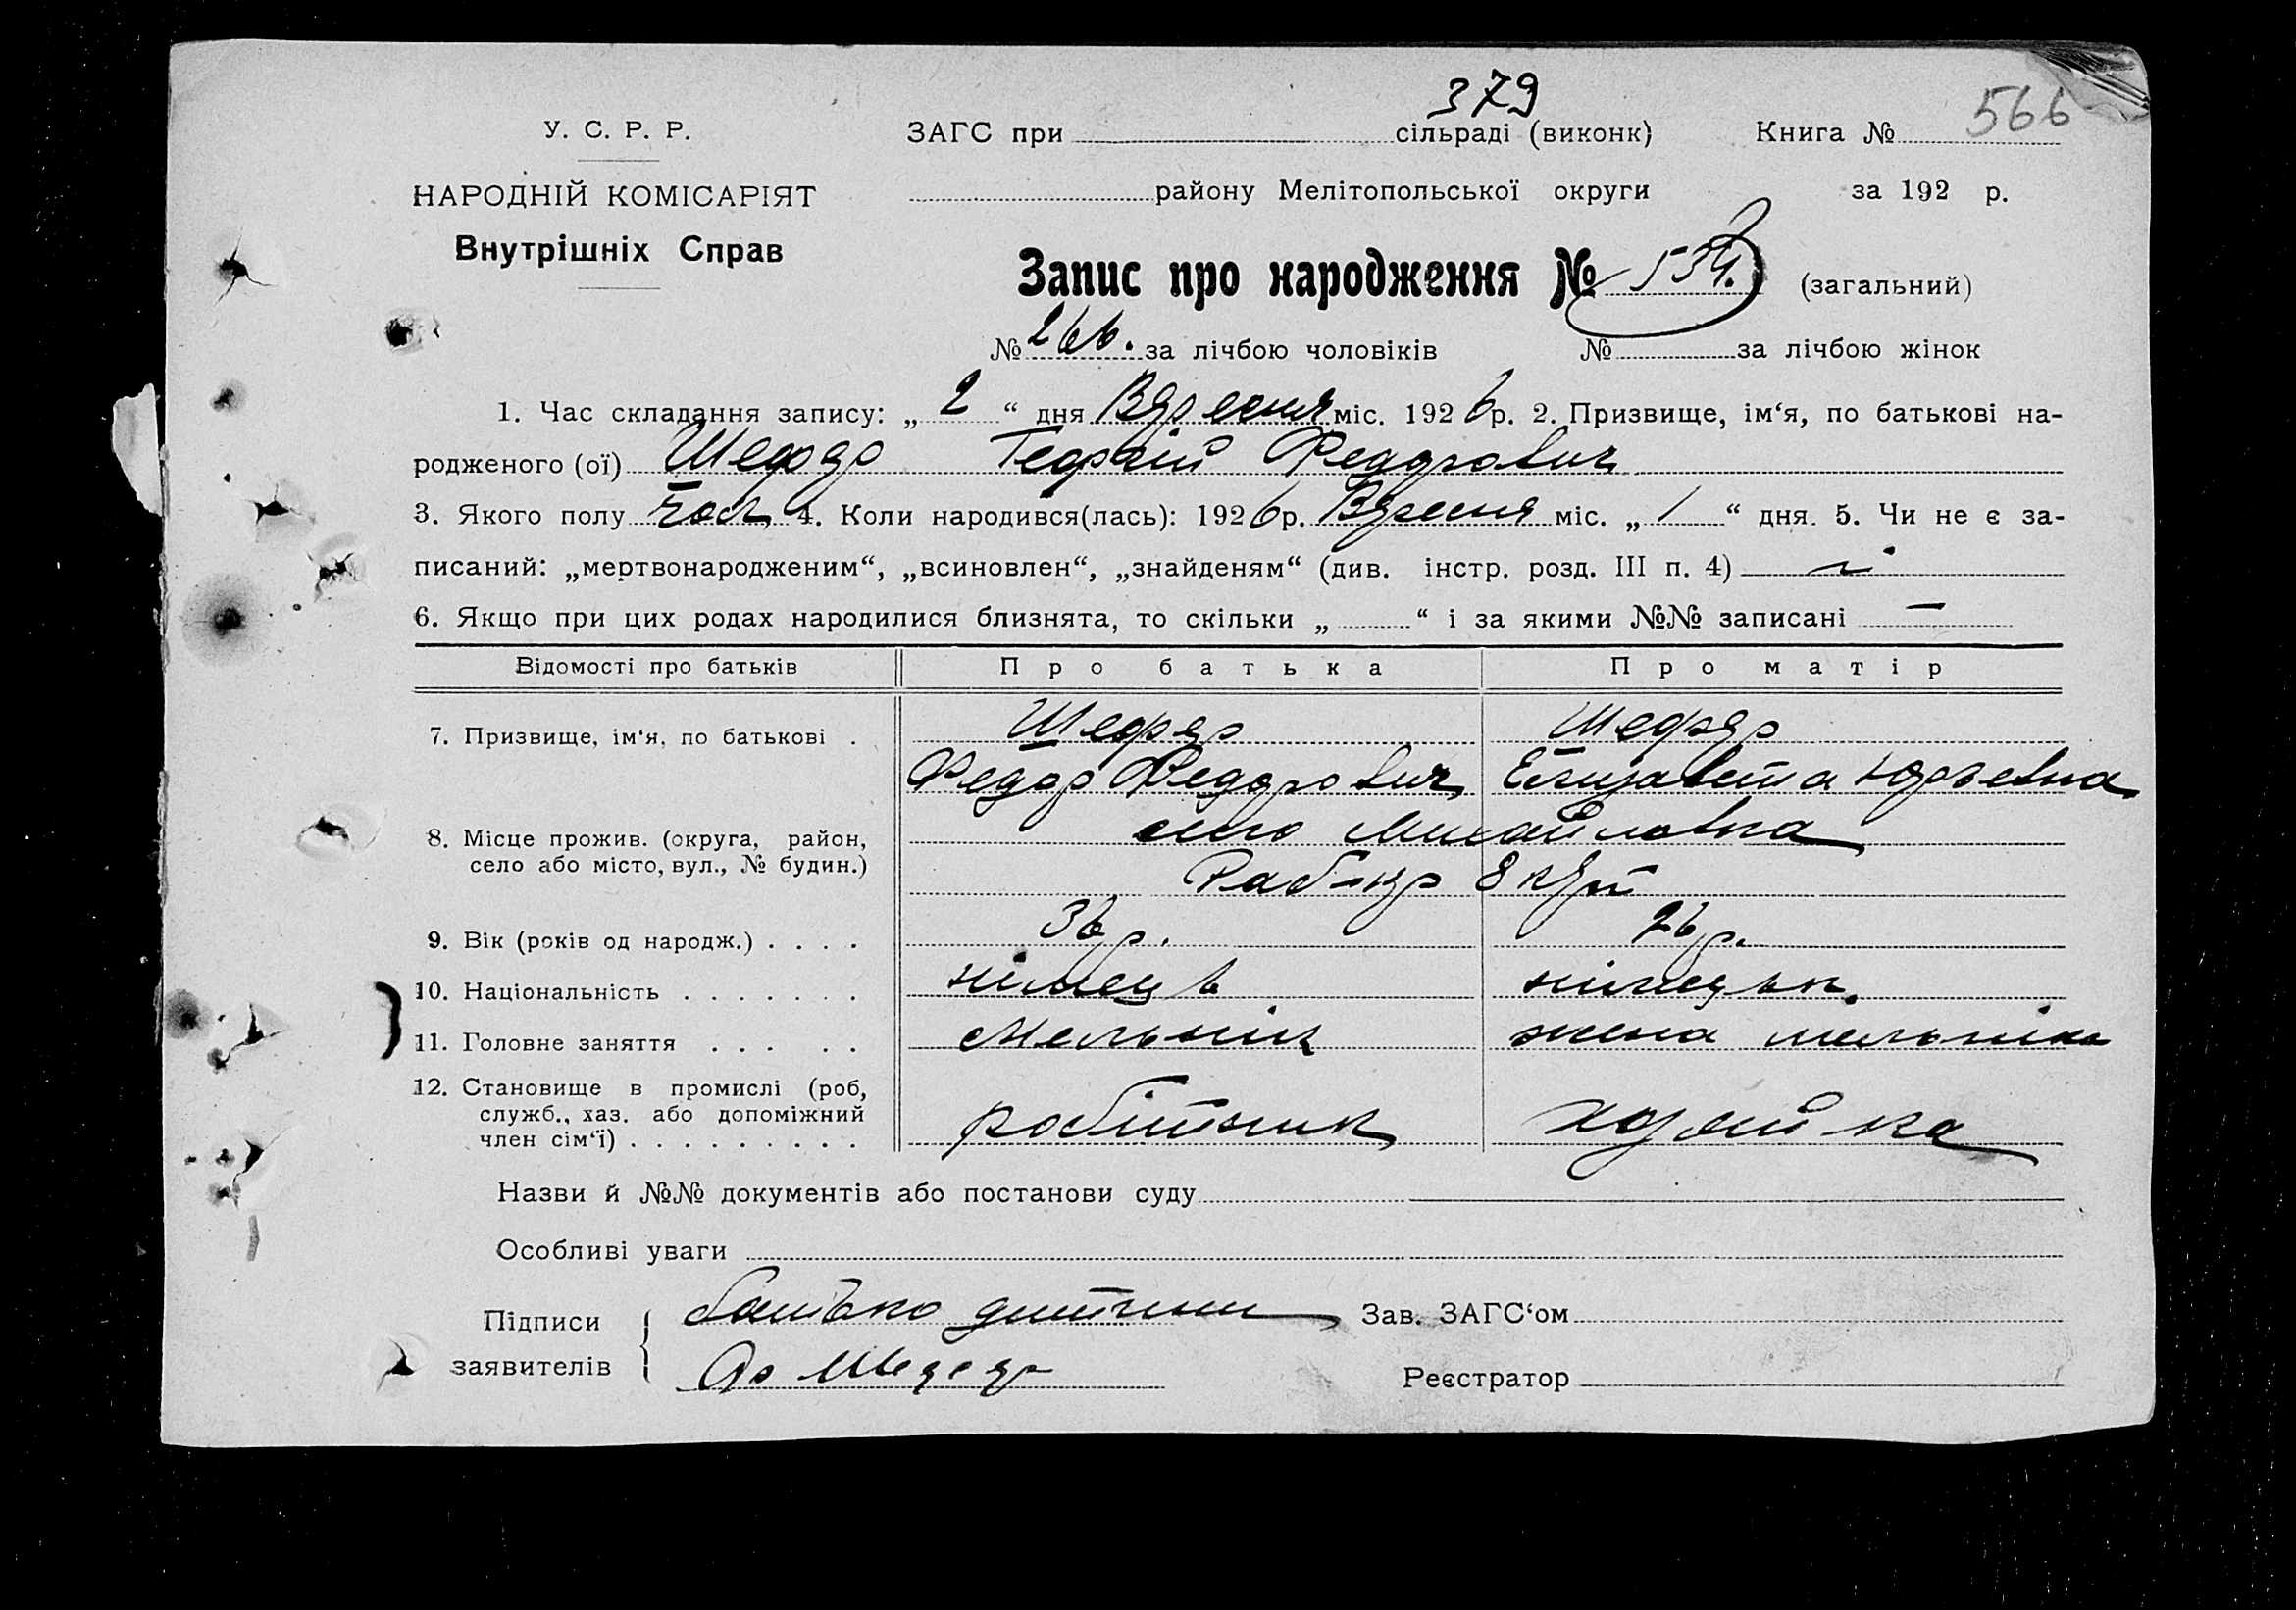 379
566
У. С. Р. Р.
ЗАГС при сільраді (виконк) Книга №
НАРОДНІЙ КОМІСАРІЯТ
району Мелітопольської округи за 192 р.
Внутрішніх Справ
Запис про народження № 534. (загальний)
№ 266. за лічбою чоловіків № за лічбою жінок
1. Час складання запису: „ 2 “ дня Вересня міс. 1926 р. 2. Призвище, ім‘я, по батькові на-
родженого (ої) Шефер Георгій Федорович
3. Якого полу чол. 4. Коли народився(лась): 1926 р. Вересня міс. „ 1 “ дня. 5. Чи не є за-
писаний: „мертвонародженим“, „всиновлен“, „знайденям“ (див. інстр. розд. III п. 4)
6. Якщо при цих родах народилися близнята, то скільки „ “ і за якими №№ записані —
Відомості про батьків Про батька Про матір
7. Призвище, ім‘я, по батькові . Шефер Шефер
Федор Федорович Елизавета Юрьевна
8. Місце прожив. (округа, район, село або місто, вул., № будин.) село Михайловка
9. Вік (років од народж.) . . . . 36 р. 26 р.
10. Національність . . . . . . . німець німецьк.
11. Головне заняття . . . . . Мельнік жена мельніка
12. Становище в промислі (роб,
служб., хаз. або допоміжний
член сім‘ї) . . . . . . . . . . робітник хозяйка
Назви й №№ документів або постанови суду
Особливі уваги
Підписи батько дитини Зав. ЗАГС‘ом
заявителів
Реєстратор